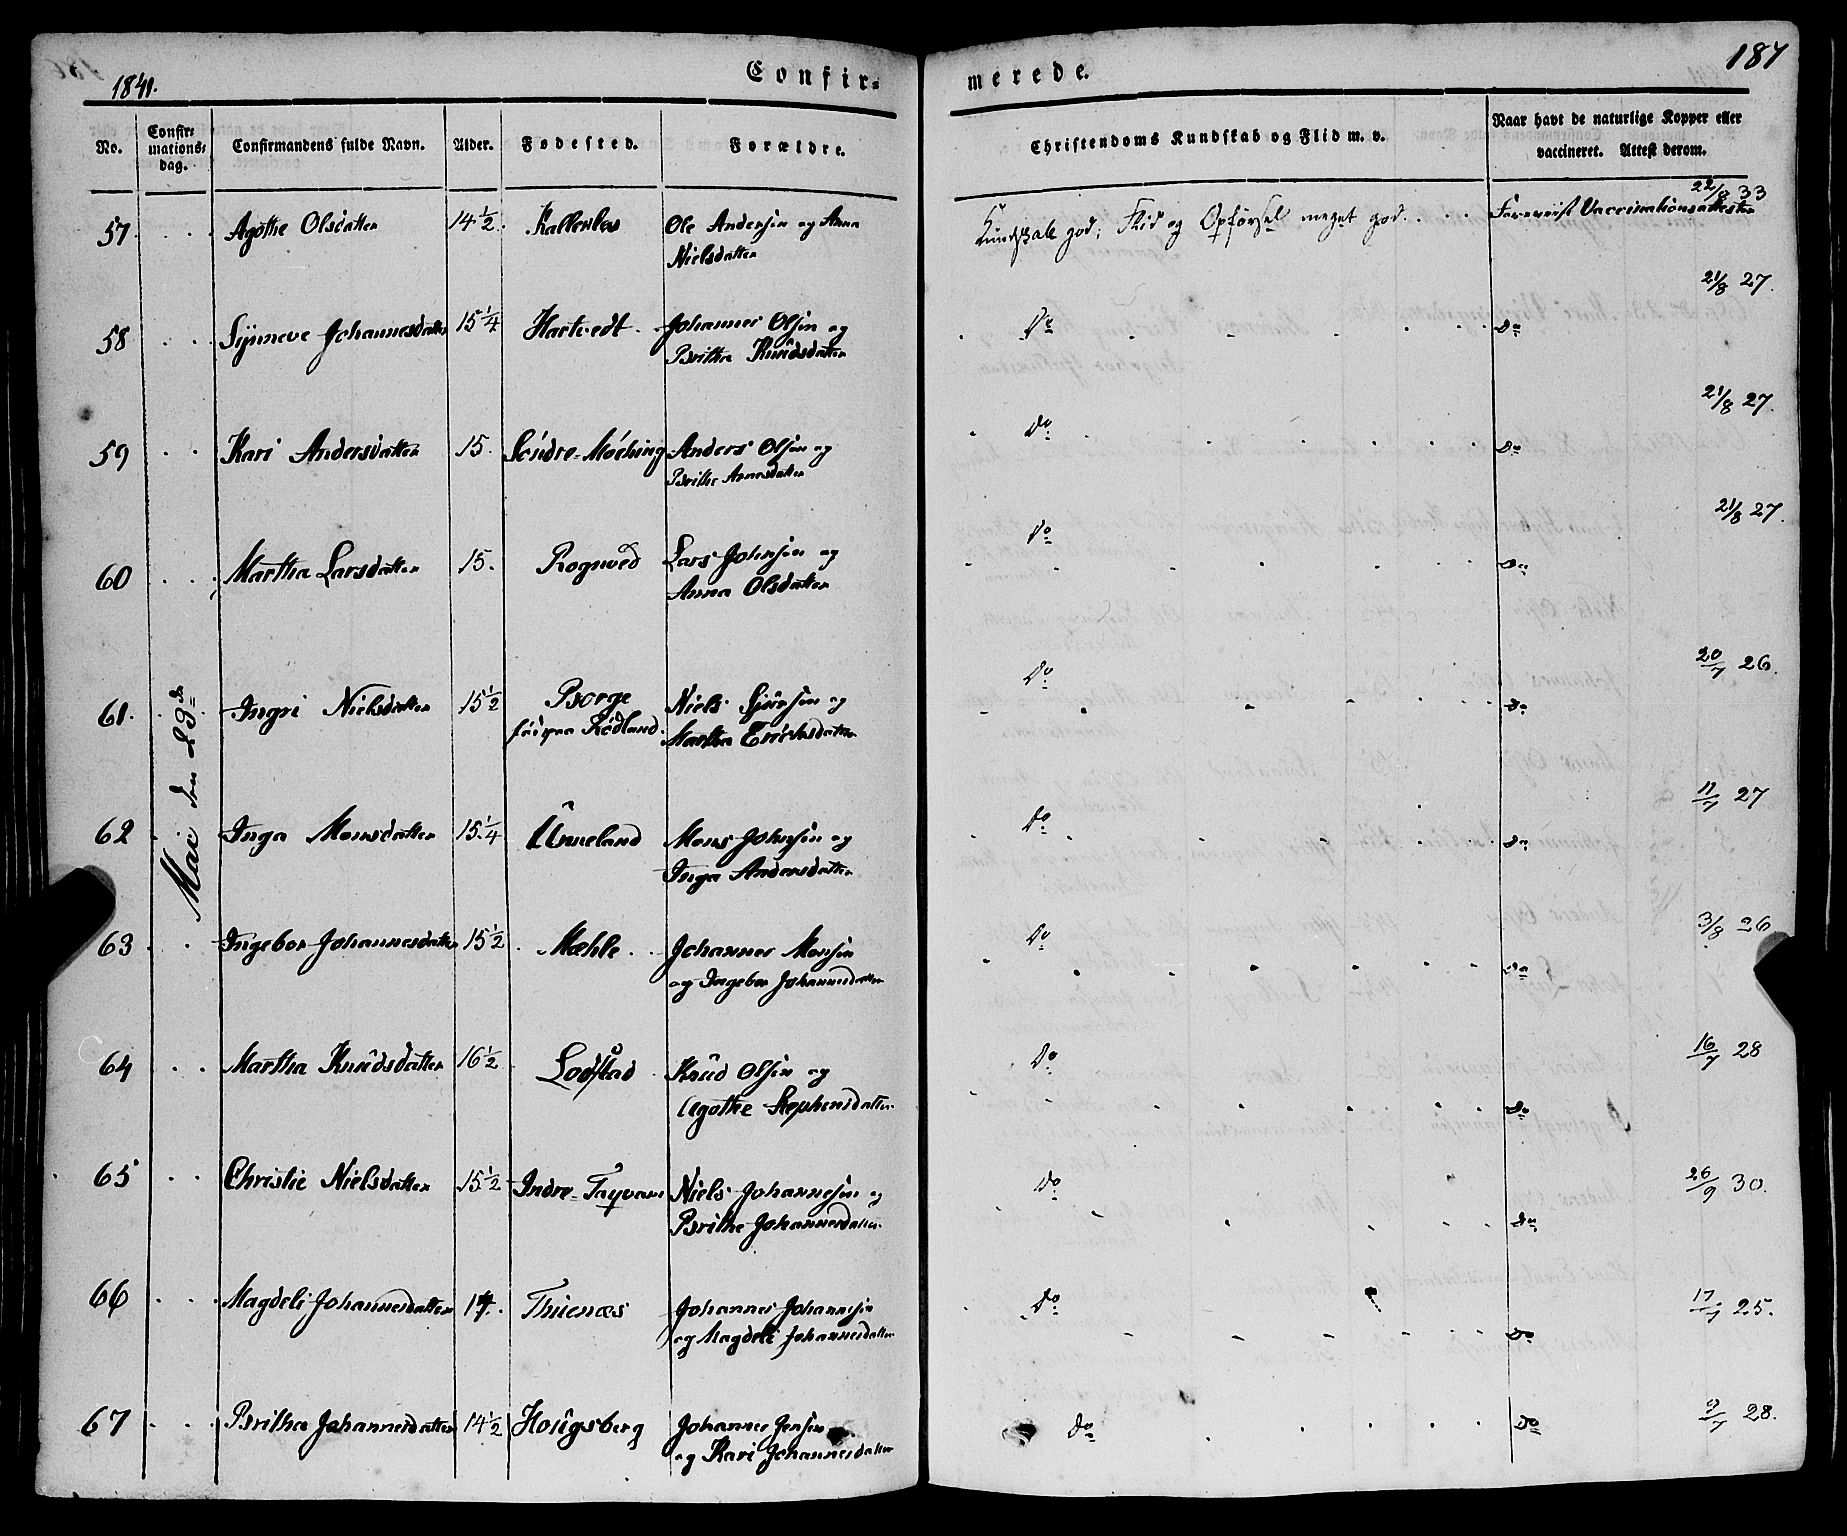 1841.
Confir=
merede.
187
No.
Confir=
mations=
dag.
Confirmandens fulde Navn.
Alder.
Fødested.
Forældre.
Christendoms Kundskab og Flid m. v.
Naar havt de naturlige Kopper eller
vaccineret. Attest derom.
Mai den 29de
57 Agothe Olsdatter 14 1/2 Ole Andersen og Anna
Nielsdatter
Kundskab god; Flid og Opførsel meget god. Foreviist Vaccinationsattester 22/8 33
58 Synneve Johannesdatter 15 1/4 Hartvedt Johannes Olsen og
Britha Knudsdatter
Do Do 21/8 27.
59 Kari Andersdatter 15. Søndre- Anders Olsen og
Brithe Arnesdatter
Do Do 21/8 27.
60 Martha Larsdatter 15. Rognved Lars Johnsen og
Anna Olsdatter
Do Do 21/8 27.
61. Ingri Nielsdatter 15 1/2 Borge
Rødland. Niels og
Martha Erichsdatter
Do Do 20/7 26.
62 Inga Monsdatter 15 1/4 Unneland Mons Johnsen og
Inga Andersdatter
Do Do 11/7 27
63 Ingebor Johannesdatter 15 1/2 Mæhle Johannes Monsen
og Ingebor Johannesdatter
Do Do 3/8 26
64 Martha Knudsdatter 16 1/2 Knud Olsen og
Agothe Stephensdatter
Do Do 16/7 28
65 Christie Nielsdatter 15 1/2 Indre- Niels Johannesen og
Brithe Johannesdatter
Do Do 26/9 30.
66 Magdeli Johannesdatter 14. Thuenæs Johannes Johannesen
og Magdeli Johannesdatter
Do Do 17/7 25.
67 Britha Johannesdatter 14 1/2 Hougsberg Johannes Jensen
og Kari Johannesdatter
Do Do 9/7 28.